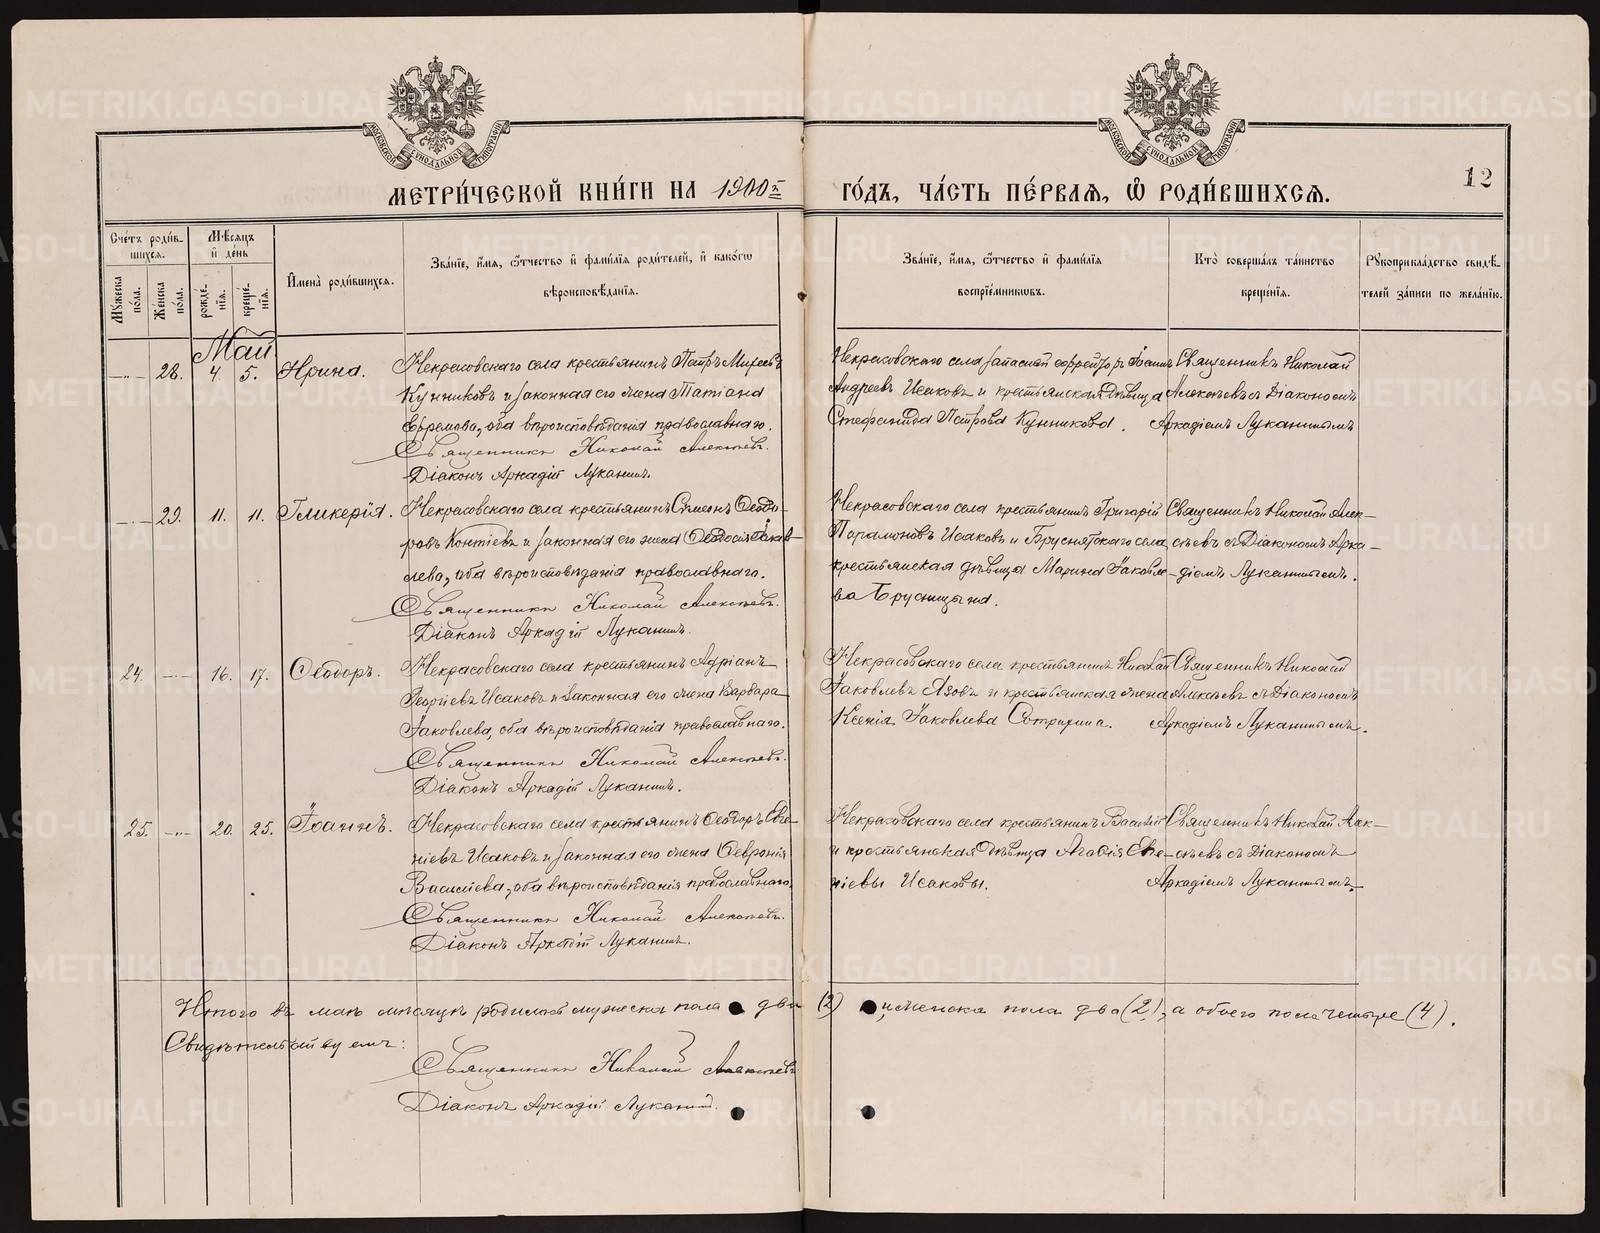 МОСКОВСКОЙ СѴНОДАЛЬНОЙ ТИПОГРАФІИ
МОСКОВСКОЙ СѴНОДАЛЬНОЙ ТИПОГРАФІИ
12
МЕТРИ́ЧЕСКОЙ КНИ́ГИ НА 1900й ГО́ДЪ, ЧА́СТЬ ПЕ́РВАѦ, Ѽ РОДИ́ВШИХСѦ.
Сче́тъ роди́в-
шихся.
Мѣ́сяцъ
и де́нь
Мꙋ́жеска
по́ла.
Же́нска
по́ла.
рожде́-
нїя.
креще́-
нїя.
Имена̀ роди́вшихся.
Зва́нїе, и́мя, ѻ́тчество и фами́лїя роди́телей, и како́гѡ
вѣроисповѣ́данїя.
Зва́нїе, и́мя, ѻ́тчество и фами́лїя
воспрїе́мниковъ.
Кто̀ соверша́лъ та́инство
креще́нїя.
Рꙋкоприкла́дство свидѣ́-
телей за́писи по жела́нїю.
Май
—„— 28. 4. 5. Ирина.
Некрасовскаго села крестьянинъ Петръ Михеевъ
Кунниковъ и законная его жена Татіана
Ефремова, оба вѣроисповѣданія православнаго.
Священникъ Николай Алексѣевъ.
Діаконъ Аркадій Луканинъ.
Некрасовскаго села запасный ефрейторъ Іоаннъ
Андреевъ Исаковъ и крестьянская дѣвица
Стефанида Петрова Кунникова.
Священникъ Николай
Алексѣевъ съ Діакономъ
Аркадіемъ Луканинымъ
—„— 29. 11. 11. Гликерія.
Некрасовскаго села крестьянинъ Сѵмеонъ Ѳеодо-
ровъ Контіевъ и законная его жена Ѳеодосія Іаков-
лева, оба вѣроисповѣданія православнаго.
Священникъ Николай Алексѣевъ.
Діаконъ Аркадій Луканинъ.
Некрасовскаго села крестьянинъ Григорій
Парамоновъ Исаковъ и Бруснятскаго села
крестьянская дѣвица Марина Іаковле-
ва Брусницына.
Священникъ Николай Алек-
сѣевъ съ Діакономъ Арка-
діемъ Луканинымъ.
24. —„— 16. 17. Ѳеодоръ.
Некрасовскаго села крестьянинъ Адріанъ
Георгіевъ Исаковъ и законная его жена Варвара
Іаковлева, оба вѣроисповѣданія православнаго.
Священникъ Николай Алексѣевъ.
Діаконъ Аркадій Луканинъ.
Некрасовскаго села крестьянинъ Николай
Іаковлевъ Язовъ и крестьянская жена
Ксенія Іаковлева Сотрихина.
Священникъ Николай
Алексѣевъ съ Діакономъ
Аркадіемъ Луканинымъ.
25. —„— 20. 25. Іоаннъ.
Некрасовскаго села крестьянинъ Ѳеодоръ Евге-
ніевъ Исаковъ и законная его жена Ѳевронія
Василіева, оба вѣроисповѣданія православнаго.
Священникъ Николай Алексѣевъ.
Діаконъ Аркадій Луканинъ.
Некрасовскаго села крестьянинъ Василій
и крестьянская дѣвица Агафія Евге-
ніевы Исаковы.
Священникъ Николай Алек-
сѣевъ съ Діакономъ
Аркадіемъ Луканинымъ.
Итого въ маѣ мѣсяцѣ родилось мужеска пола два (2) и женска пола два (2), а обоего пола четыре (4).
Свидѣтельствуемъ:
Священникъ Николай Алексѣевъ
Діаконъ Аркадій Луканинъ.
METRIKI.GASO-URAL.RU